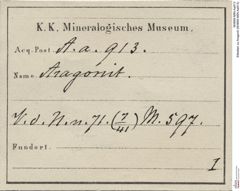 K.K. Mineralogisches Museum.
Acq. Post. A. a. 913.
Name Aragonit.
V. d. N. n. 71. (7/41) M. 597.
Fundort.
I